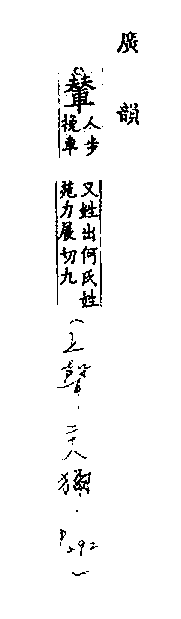 廣韻
輦
人步
挽車
又姓出何氏姓
苑力展切九
(上聲.二十八獮.P.292)